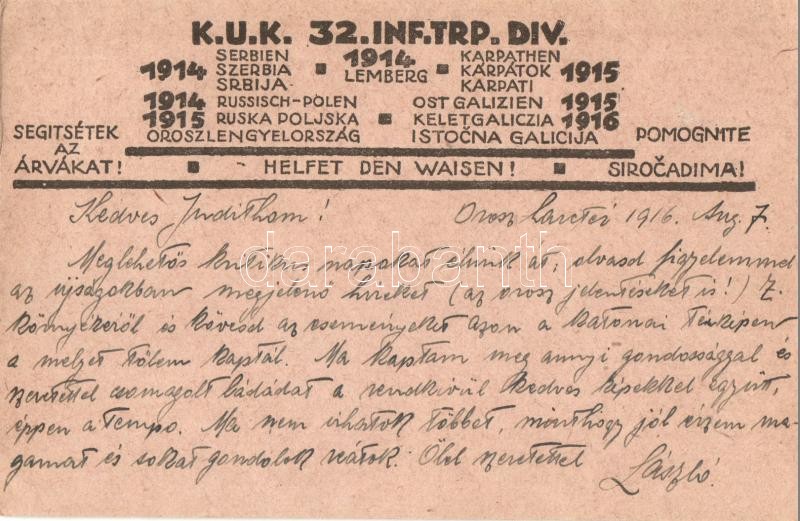 K.U.K. 32. INF. TRP. DIV.
1914 SERBIEN SZERBIA SRBIJA ▪ 1914 LEMBERG ▪ KARPATHEN KÁRPÁTOK KARPATI 1915
1914 1915 RUSSISCH-POLEN RUSKA POLJSKA OROSZLENGYELORSZÁG ▪ OST GALIZIEN KELETGALICZIA ISTOČNA GALICIJA 1915 1916
SEGITSÉTEK AZ ÁRVÁKAT! ▪ HELFET DEN WAISEN! ▪ POMOGNITE SIROČADIMA!
Kedves Judithom! Orosz harctér 1916. Aug. 7.
Meglehetős kritikus napokat élünk át, olvasd figyelemmel
az újságokban megjelenő híreket (az orosz jelentéseket is!) Z.
környékéről és kövesd az eseményeket azon a katonai térképen
a melyet tőlem kaptál. Ma kaptam meg annyi gondossággal és
szeretettel csomagolt ládádat a rendkívül kedves képekkel együtt,
éppen a Tempo. Ma nem írhatok többet, minthogy jól érzem ma-
gamat és sokat gondolok reátok. Ölel szeretettel
László.
darabanth